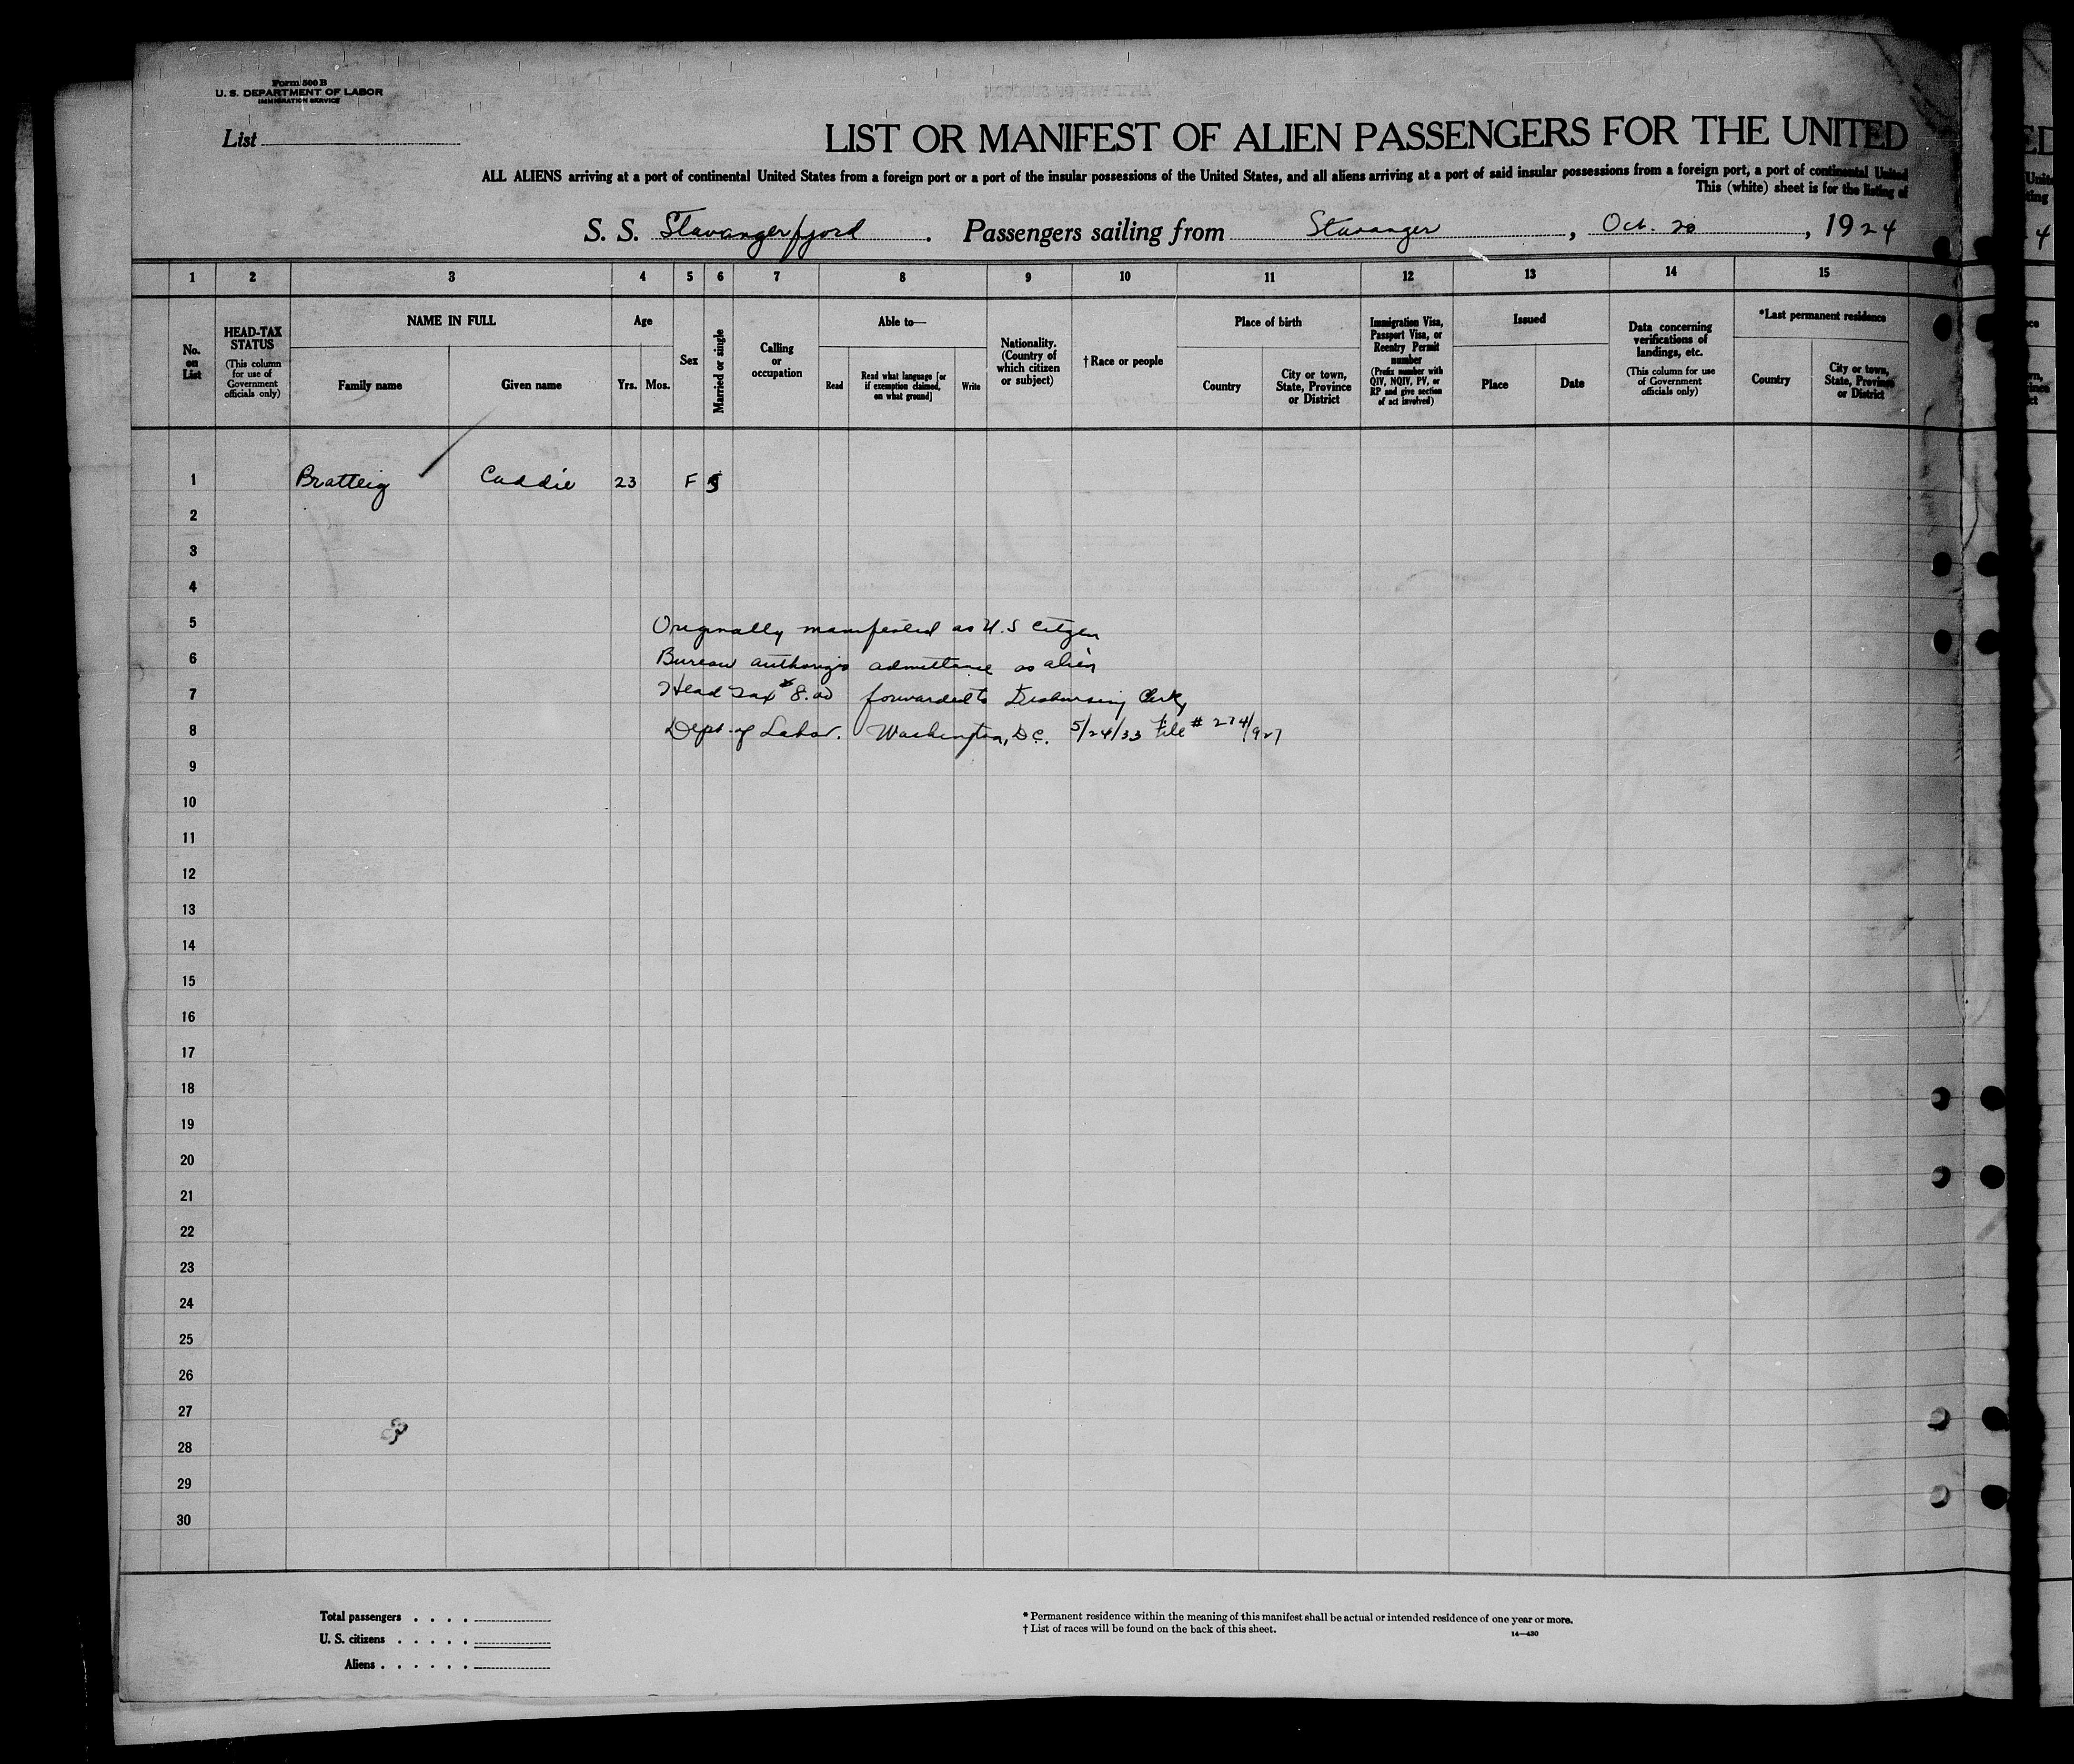 Form 500 B
U. S. DEPARTMENT OF LABOR
IMMIGRATION SERVICE
List
LIST OR MANIFEST OF ALIEN PASSENGERS FOR THE UNITED
ALL ALIENS arriving at a port of continental United States from a foreign port or a port of the insular possessions of the United States, and all aliens arriving at a port of said insular possessions from a foreign port, a port of continental United
This (white) sheet is for the listing of
S. S. Stavangerfjord. Passengers sailing from Stavanger, Oct. 20, 1924
1 2 3 4 5 6 7 8 9 10 11 12 13 14 15
No. on List
HEAD-TAX STATUS
(This column for use of Government officials only)
NAME IN FULL
Family name
Given name
Age
Yrs. Mos.
Sex
Married or single
Calling or occupation
Able to—
Read
Read what language [or if exemption claimed, on what ground]
Write
Nationality. (Country of which citizen or subject)
† Race or people
Place of birth
Country
City or town, State, Province or District
Immigration Visa, Passport Visa, or Reentry Permit number
(Prefix number with QIV, NQIV, PV, or RP and give section of act involved)
Issued
Place
Date
Data concerning verifications of landings, etc.
(This column for use of Government officials only)
*Last permanent residence
Country
City or town, State, Province or District
1 Bratteig Caddie 23 F S
2
3
4
5 Originally manifested as U.S Citizen
6 Bureau authorizes admittance as alien
7 Head Tax $8.00 forwarded to Disbursing Clerk,
8 Dept. of Labor. Washington, D.C. 5/24/33 File # 274/927
9
10
11
12
13
14
15
16
17
18
19
20
21
22
23
24
25
26
27
28
29
30
Total passengers . . . .
U. S. citizens . . . . .
Aliens . . . . . .
* Permanent residence within the meaning of this manifest shall be actual or intended residence of one year or more.
† List of races will be found on the back of this sheet.
14—430